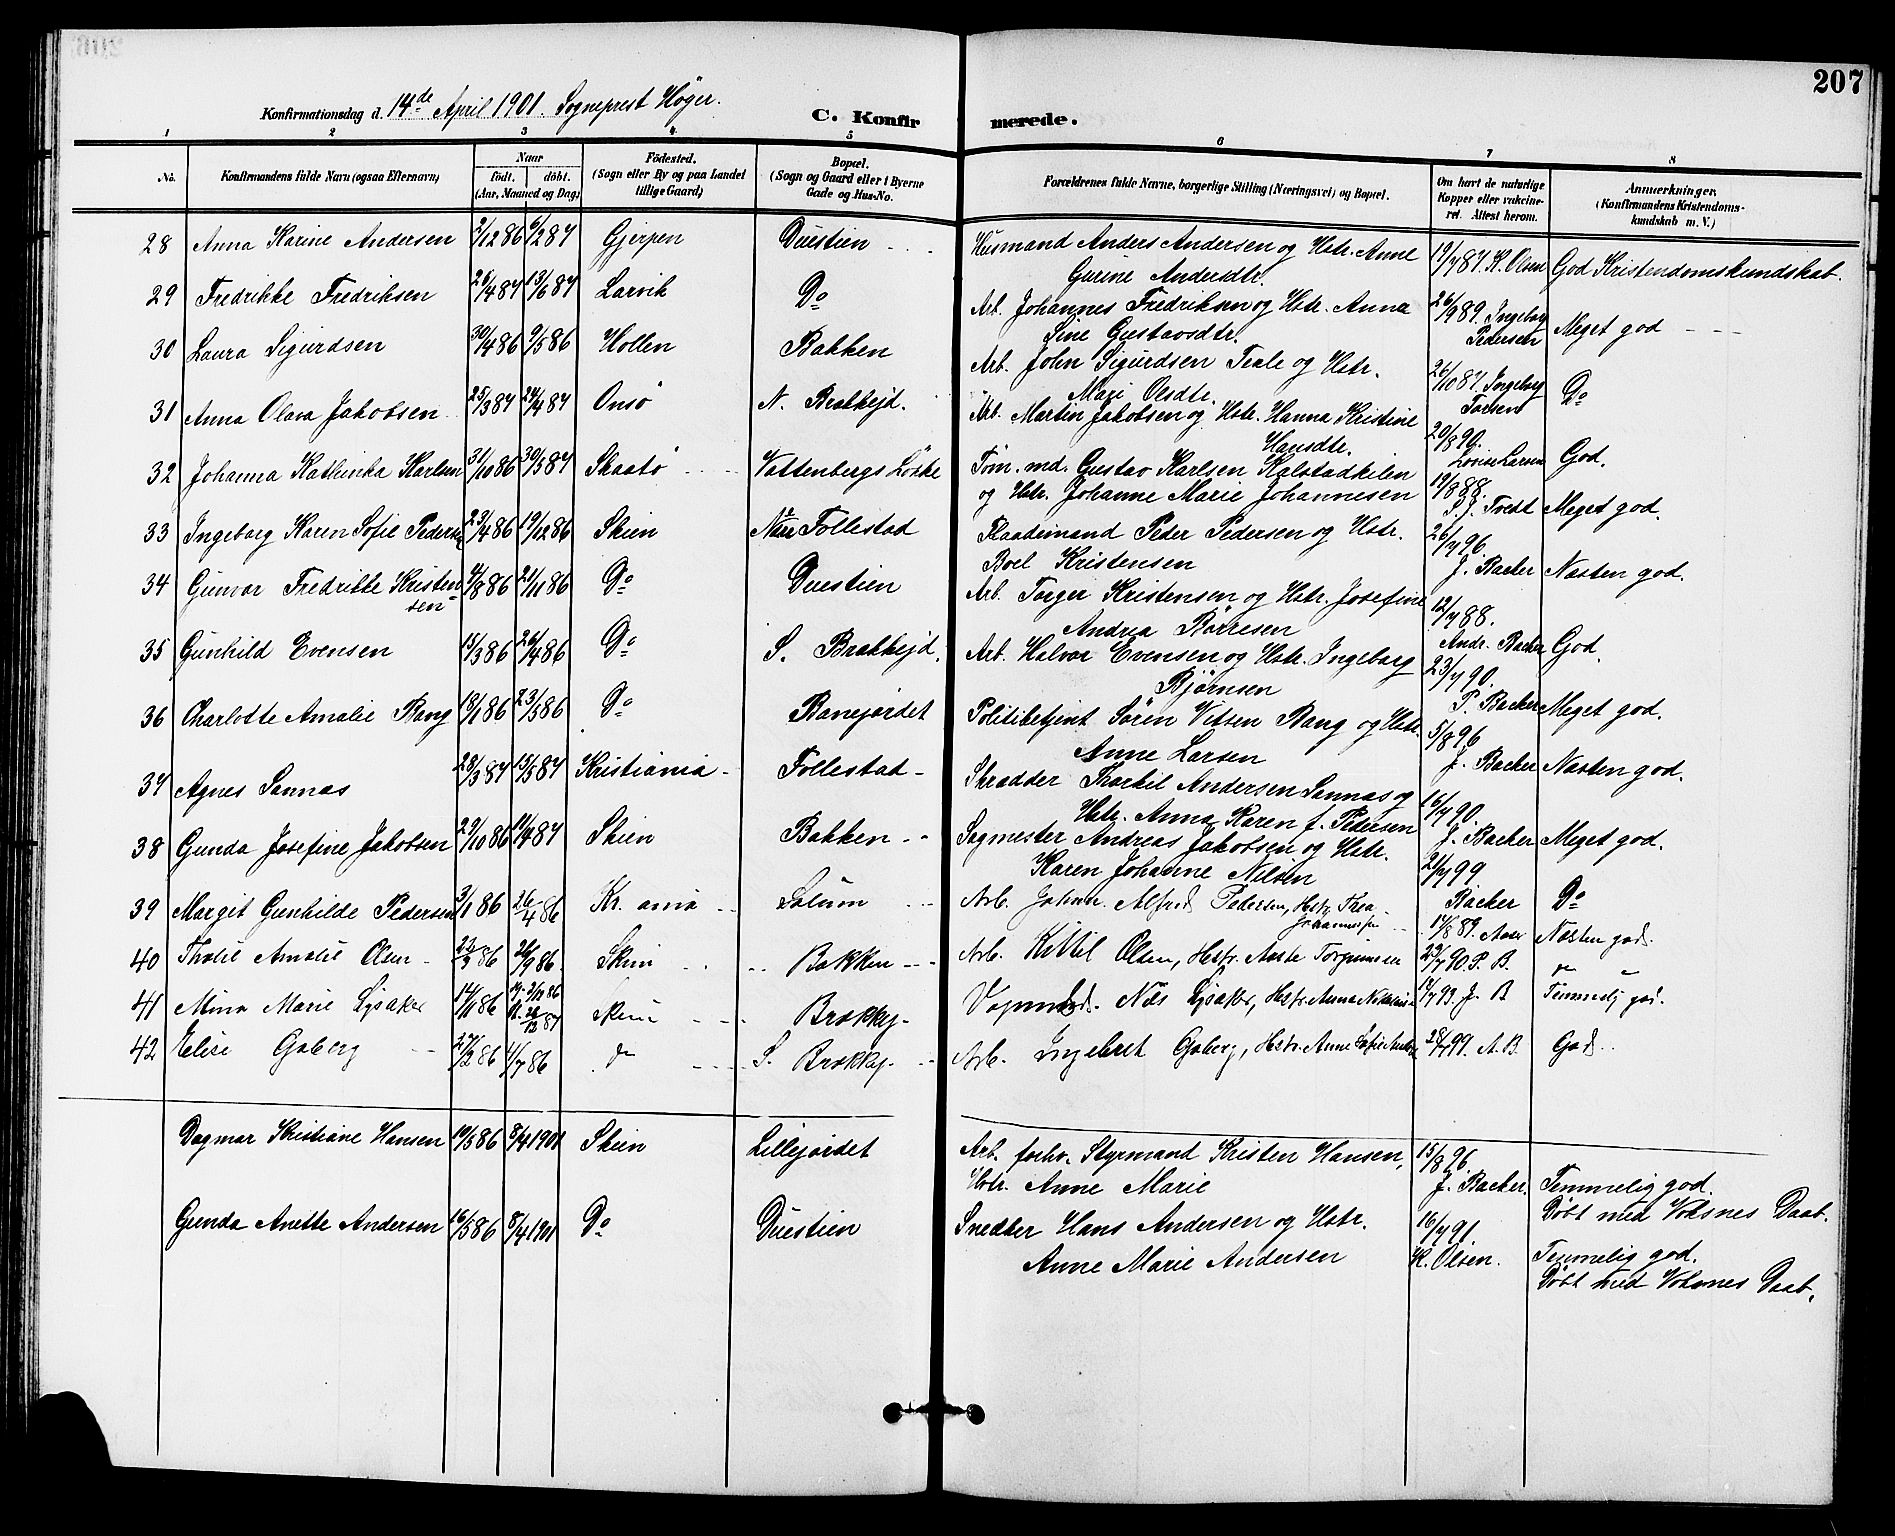 207
Konfirmationsdag d. 14de April 1901. Sogneprest Höyer.
C. Konfirmerede.
1 2 3 4 5 6 7 8
No. Konfirmandens fulde Navn (ogsaa Efternavn) Naar födt. döbt. (Aar, Maaned og Dag) Födested. (Sogn eller By og paa Landet tillige Gaard) Bopæl. (Sogn og Gaard eller i Byerne Gade og Hus-No. Forældrenes fulde Navne, borgerlige Stilling (Næringsvei) og Bopæl. Om havt de naturlige Kopper eller vakcineret. Attest herom. Anmærkninger. (Konfirmandens Kristendomskundskab m. V.)
28 Anna Karine Andersen 2/12 86 6/2 87 Gjerpen Duestien Husmand Anders Andersen og Hstr. Anne 19/7 87. K. Olsen God Kristendomskundskab.
Gurine Andersdtr.
29 Fredrikke Fredriksen 26/4 87 19/6 87 Larvik Do Arb. Johannes Fredriksen og Hstr. Anna 26/9 89. Ingeborg Pedersen Meget god
Sine Gustavsdtr.
30 Laura Sigurdsen 30/4 86 9/5 86 Hollen Bakken Arb. John Sigurdsen Teale og Hstr. 26/10 87. Ingeborg Do
Mari Olsdtr.
31 Anna Olava Jakobsen 25/3 87 24/4 87 Onsö N. Brekkejd. Arb. Martin Jakobsen og Hstr. Hanna Kristine 20/8 90. Lovise Larsen God.
Hansdtr.
32 Johanna Kathinka Karlsen 31/10 86 30/5 87 Skaatö Vattenbergs Lökke Töm.md. Gustav Karlsen Kalstadkilen 19/8 88. Meget god.
og Hstr. Johanne Marie Johannesen
33 Ingeborg Karen Sofie Pedersen 23/4 86 19/12 86 Skien Follestad Flaademand Peder Pedersen og Hstr. 26/7 96. J. Backer Næsten god.
Boel Kristensen
34 Gunvor Fredrikke Kristensen 4/8 86 21/11 86 Do Duestien Arb. Torger Kristensen og Hstr. Josefine 12/7 88. Andr. Backer God.
Andrea Börresen
35 Gunhild Evensen 15/3 86 26/4 86 Do S. Brekkejd. Arb. Halvor Evensen og Hstr. Ingeborg 23/7 90. P. Backer Meget god.
Björnsen
36 Charlotte Amalie Bang 18/1 86 23/5 86 Do Banejordet Politibetjent Sören Vitsen Bang og Hstr. 5/8 96 J. Backer Næsten god.
Anne Larsen
37 Agnes Sannæs 28/3 87 15/5 87 Kristiania Follestad Skrædder Thorkil Andersen Sannæs og 16/7 90. J. Backer Meget god.
Hstr. Anna Karen f. Pedersen
38 Gunda Josefine Jakobsen 29/10 86 11/4 87 Skien Bakken Sagmester Andreas Jakobsen og Hstr. 21/7 99 Backer Do
Karen Johanne Nilsen
39 Margit Gunhilde Pedersen 3/1 86 26/4 86 Kr. ania Solum Arb. Johan Alfred Pedersen, Hstr. Thea Johannesen 17/8 89. Næsten god.
40 Tholie Amalie Olsen 23/3 86 26/9 86 Skien Bakken Arb. Kittil Olsen, Hstr. Aaste Torgrimsen 29/7 90 P. B. do
41 Mina Marie Lysaker 14/11 86 Skien Brekkj. Vognmd. Nils Lysaker, Hstr. Anna 17/7 93. J. B Temmelig god.
42 Elise Goberg 27/2 86 4/7 86 do S. Brekkj. Arb. Ingebret Goberg, Hstr. Anne Sofie 28/7 99. A. B. God.
Dagmar Kristiane Hansen 19/5 86 8/4 1901 Skien Lillejordet Arb. forhv. Styrmand Kristen Hansen, 15/8 96. J. Backer. Temmelig god.
Hstr. Anne Marie Döbt med Voksnes Daab.
Gunda Anette Andersen 16/5 86 8/4 1901 Do Duestien Snedker Hans Andersen og Hstr. 16/7 91. K. Olsen. Temmelig god.
Anne Marie Andersen Döbt med Voksnes Daab.